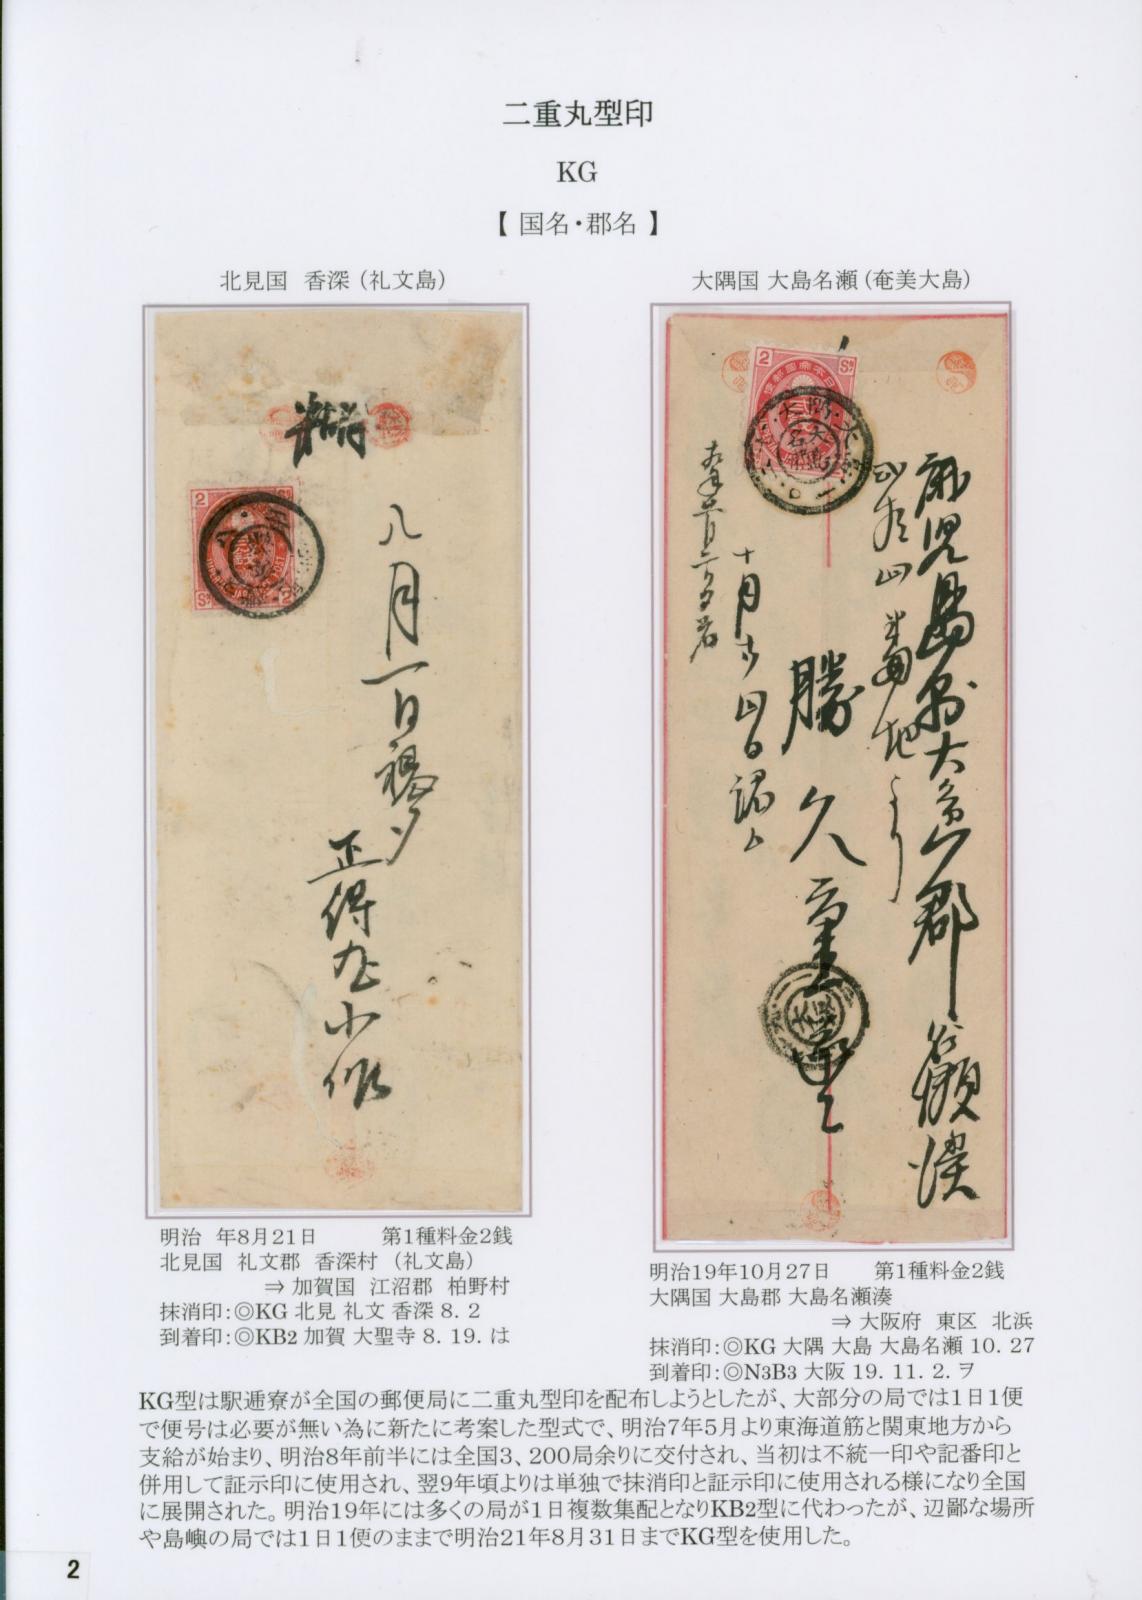 二重丸型印
KG
【 国名・郡名 】
北見国 香深（礼文島）
大隅国 大島名瀬（奄美大島）
2
Sn
八月一日
正得
小作
2
Sn
鹿児島県大島郡名瀬湊
番地より
勝久
十月
明治 年8月21日 第1種料金2銭
北見国 礼文郡 香深村 （礼文島）
⇒ 加賀国 江沼郡 柏野村
抹消印：◎KG 北見 礼文 香深 8. 2
到着印：◎KB2 加賀 大聖寺 8. 19. は
明治19年10月27日 第1種料金2銭
大隅国 大島郡 大島名瀬湊
⇒ 大阪府 東区 北浜
抹消印：◎KG 大隅 大島 大島名瀬 10. 27
到着印：◎N3B3 大阪 19. 11. 2. ヲ
KG型は駅逓寮が全国の郵便局に二重丸型印を配布しようとしたが、大部分の局では1日1便
で便号は必要が無い為に新たに考案した型式で、明治7年5月より東海道筋と関東地方から
支給が始まり、明治8年前半には全国3、200局余りに交付され、当初は不統一印や記番印と
併用して証示印に使用され、翌9年頃よりは単独で抹消印と証示印に使用される様になり全国
に展開された。明治19年には多くの局が1日複数集配となりKB2型に代わったが、辺鄙な場所
や島嶼の局では1日1便のままで明治21年8月31日までKG型を使用した。
2